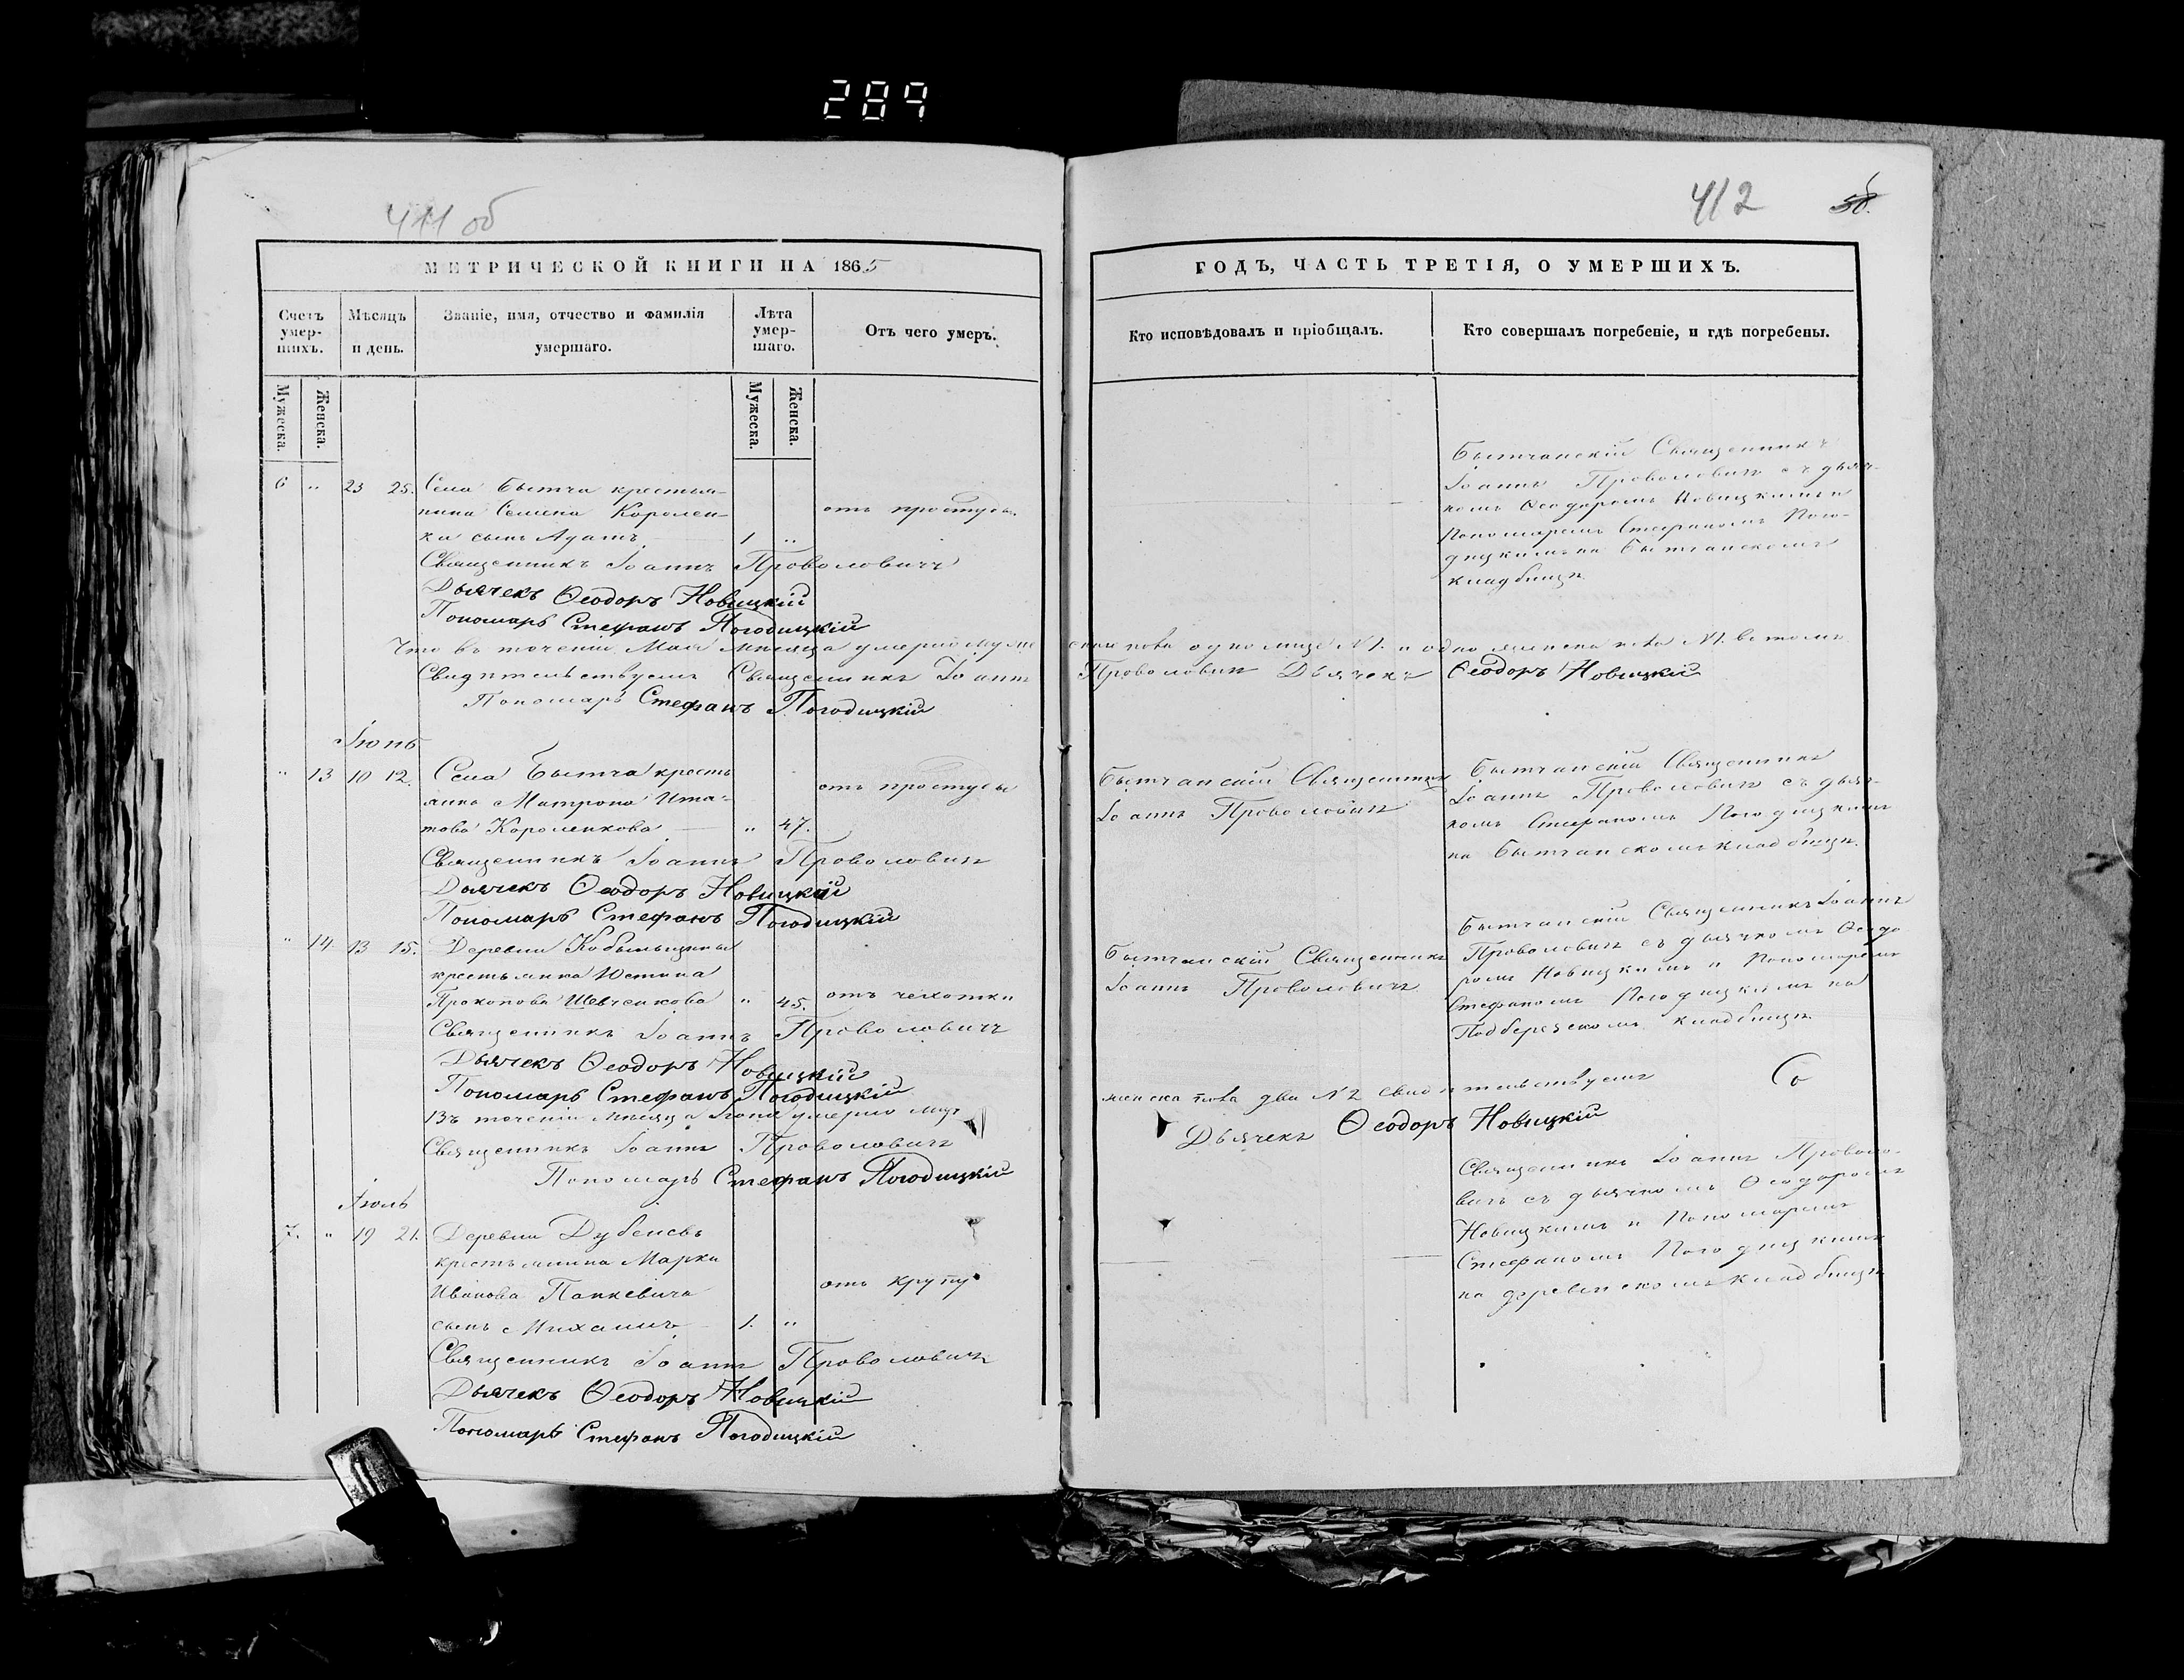 289
411 об
МЕТРИЧЕСКОЙ КНИГИ НА 1865
Счетъ умер- шихъ.
Мѣсяцъ и день.
Званіе, имя, отчество и фамилія умершаго.
Лѣта умер- шаго.
Отъ чего умеръ.
Мужеска.
Женска.
Мужеска.
Женска.
6 " 23 25. Села Бытча крестья-
нина Семена Королен- отъ простуды.
ки сынъ Адамъ 1 "
Священникъ Іоаннъ Проволовичъ
Дьячекъ Ѳеодоръ Новицкій
Пономарь Стефанъ Погодицкій
Что въ теченіи Мая мѣсяца умерло муже
Свидѣтельствуемъ Священникъ Іоаннъ
Пономарь Стефанъ Погодицкій
Іюнь
" 13 10 12. Села Бытча кресть
янка Матрона отъ простуды
това Короленкова " 47.
Священникъ Іоаннъ Проволовичъ
Дьячекъ Ѳеодоръ Новицкій
Пономарь Стефанъ Погодицкій
" 14 13 15. Деревни Кобыльщины
крестьянка Юстина
Прокопова Шевченкова " 45. отъ чехотки
Священникъ Іоаннъ Проволовичъ
Дьячекъ Ѳеодоръ Новицкій
Пономарь Стефанъ Погодицкій
Въ теченіи мѣсяца Іюня умерло
Священникъ Іоаннъ Проволовичъ
Пономарь Стефанъ Погодицкій
Іюль
7. " 19 21. Деревни Дубенсвъ
крестьянина Марка
Иванова Панкевича отъ крупу
сынъ Михаилъ 1. "
Священникъ Іоаннъ Проволовичъ
Дьячекъ Ѳеодоръ Новицкій
Пономарь Стефанъ Погодицкій
412
ГОДЪ, ЧАСТЬ ТРЕТІЯ, О УМЕРШИХЪ.
Кто исповѣдовалъ и пріобщалъ.
Кто совершалъ погребеніе, и гдѣ погребены.
Бытчанскій Священникъ
Іоаннъ Проволовичъ съ дьяч-
комъ Ѳеодоромъ Новицкимъ и
Пономаремъ Стефаномъ Пого-
дицкимъ на Бытчанскомъ
кладбищѣ.
ска пола одно лице N 1. и одно женска пола N 1. въ томъ
Проволовичъ Дьячекъ Ѳеодоръ Новицкій
Бытчанскій Священникъ
Іоаннъ Проволовичъ
Бытчанскій Священникъ
Іоаннъ Проволовичъ съ дьяч-
комъ Стефаномъ Погодицкимъ
на Бытчанскомъ кладбищѣ.
Бытчанскій Священникъ
Іоаннъ Проволовичъ
Бытчанскій Священникъ Іоаннъ
Проволовичъ съ дьячкомъ Ѳеодо
ромъ Новицкимъ и Пономаремъ
Стефаномъ Погодицкимъ на
Подберезскомъ кладбищѣ.
женска пола два N 2 свидѣтельствуемъ
Дьячекъ Ѳеодоръ Новицкій
Священникъ Іоаннъ Проволо-
вичъ съ дьячкомъ Ѳеодоромъ
Новицкимъ и Пономаремъ
Стефаномъ Погодицкимъ
на деревенскомъ кладбищѣ